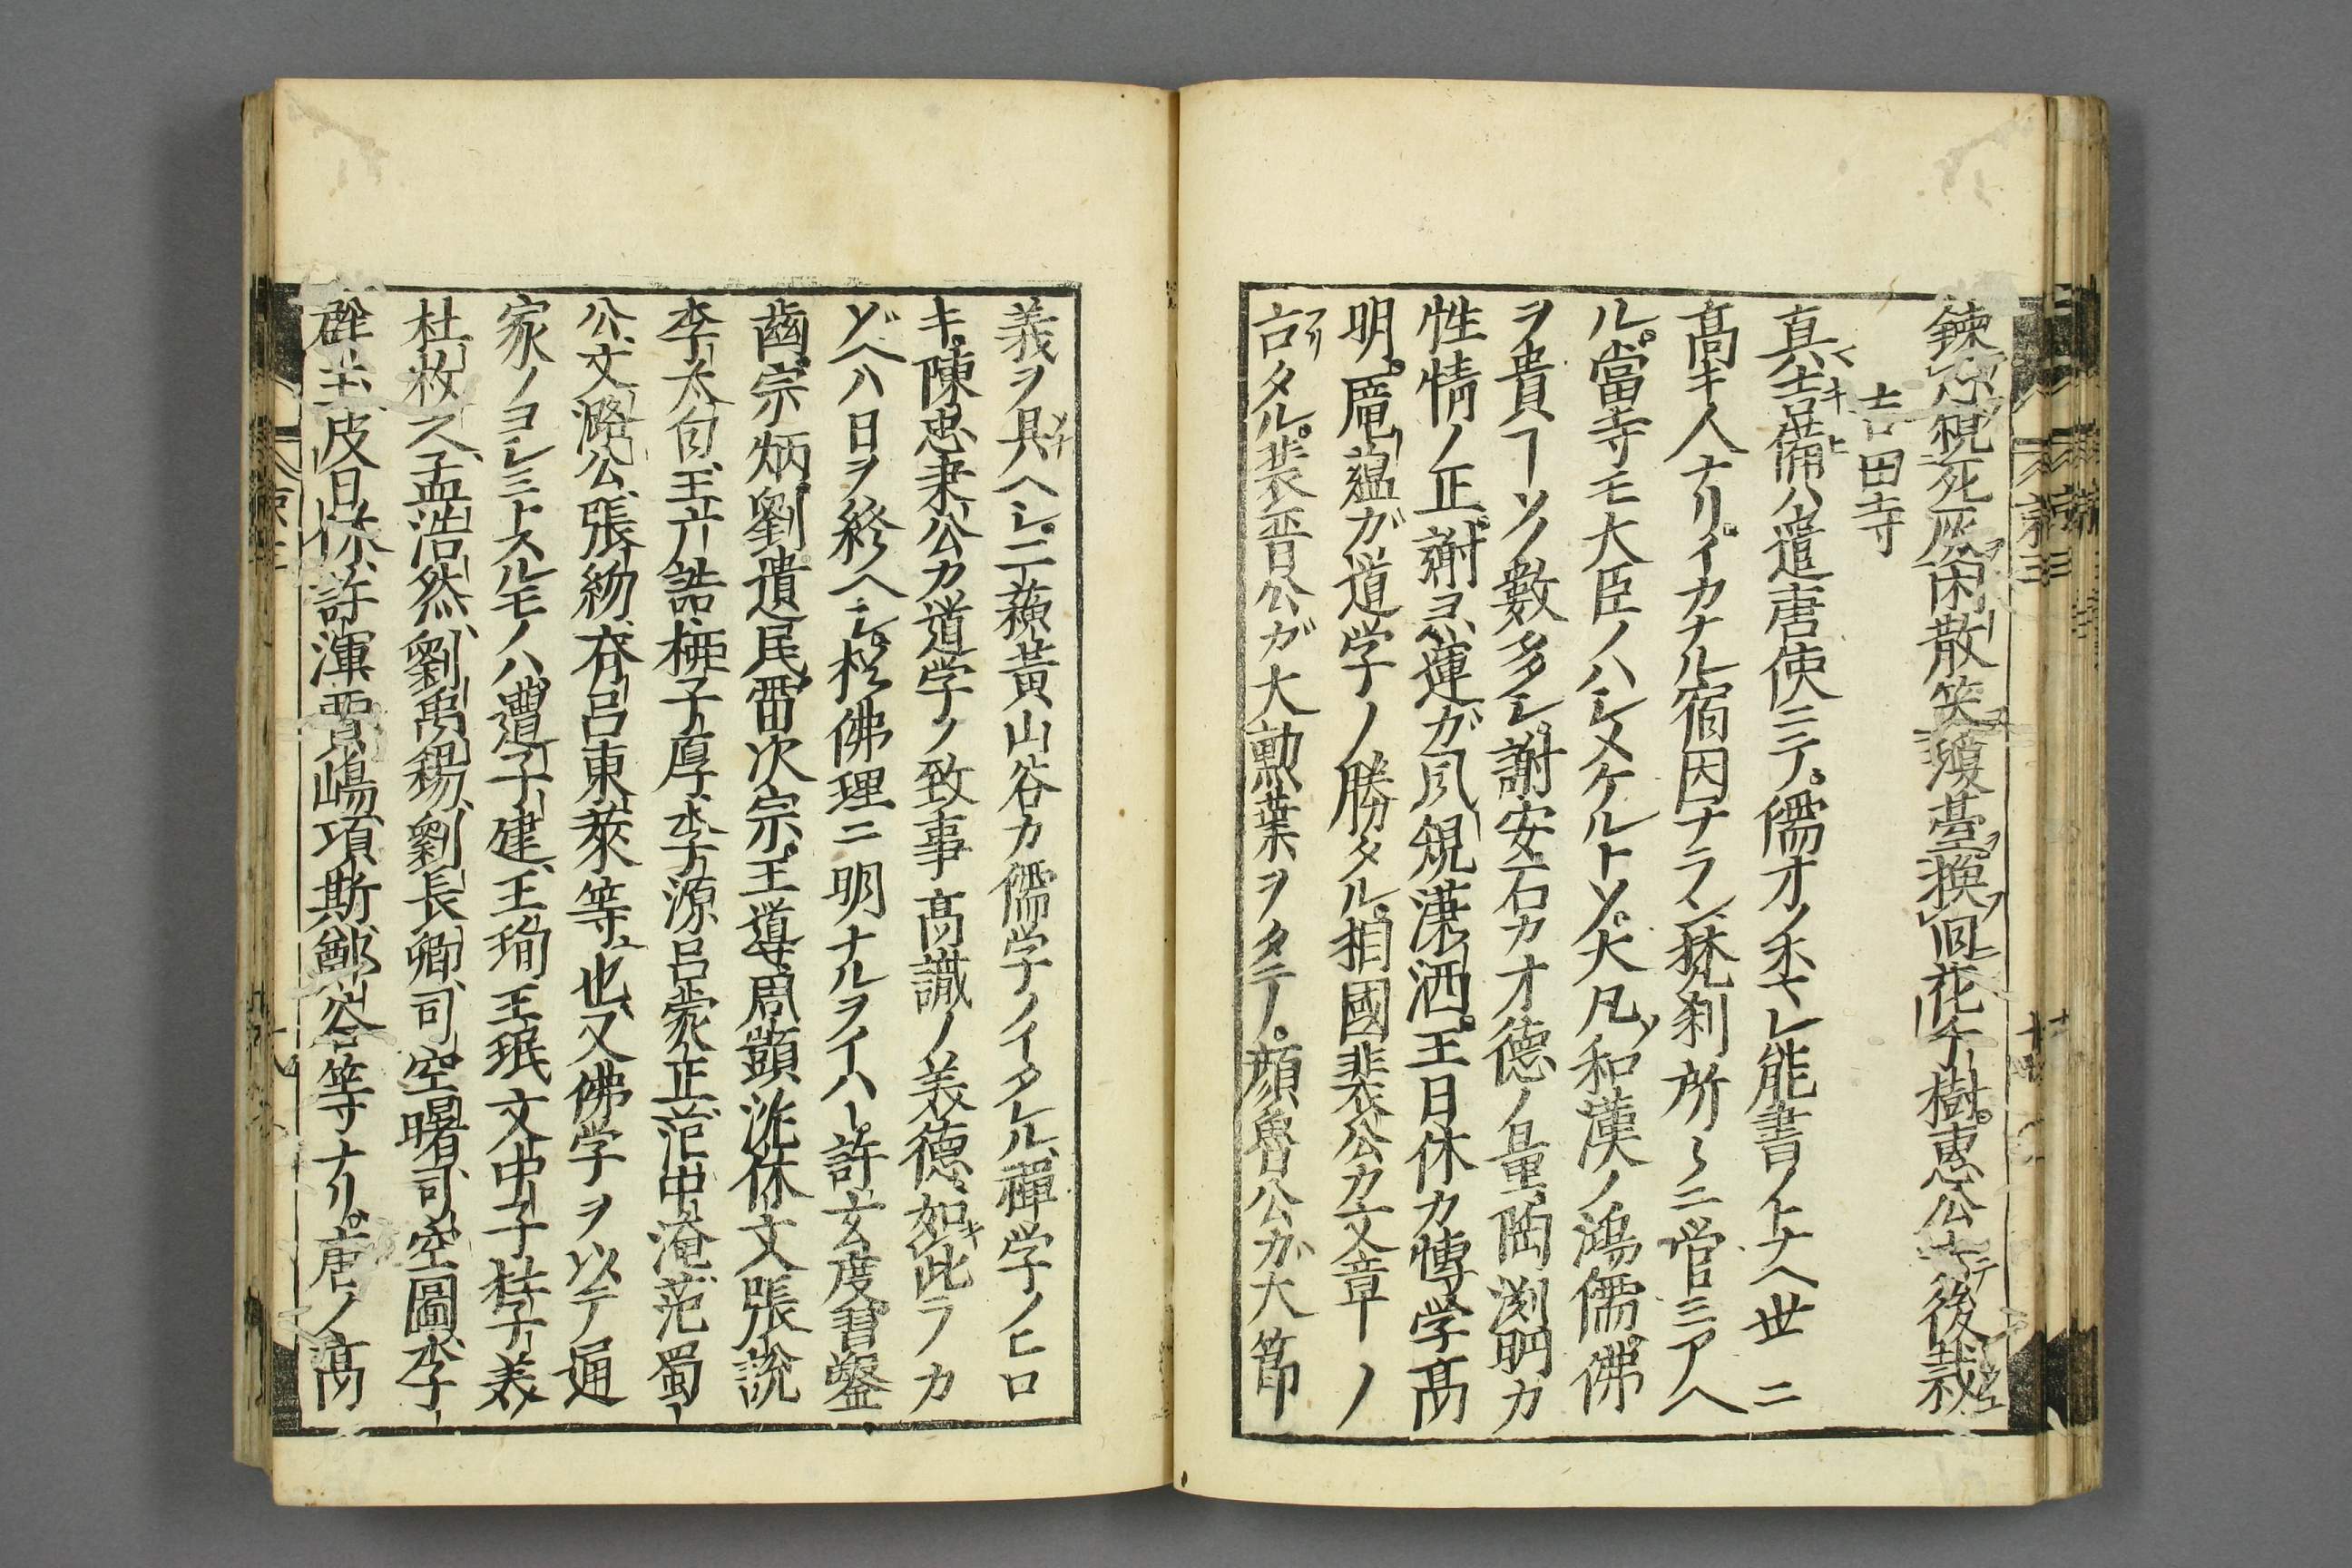 鍊忍視死灰閑散笑瓊臺換回花千樹。惠公去後栽
吉田寺
真吉備ハ遣唐使ニテ。儒才ノホマレ能書ノトナヘ世ニ
高キ人ナリ。イカナル宿因ナラン梵刹所々ニ営ミアヘ
ル。當寺モ大臣ノハシメケルトソ。大凡和漢ノ鴻儒佛
ヲ貴フーソノ數多シ。謝安石カ才德ノ量陶渕明カ
性情ノ正。謝ヨ蓮ガ風規漢洒。王日休カ博学高
明。庵蘊ガ道学ノ勝タル。相國裴公カ文章ーノ
言タル。裴晋公ガ大勲葉ヲタテノ。顔魯公ガ大節
義ヲ具ヘシ。二蘓黃山谷カ儒学ノイタレル禪学ノヒロ
キ。陳忠肅公カ道学ノ致事高識ノ美德如此ラカ
ゾヘハ日ヲ終ヘシ。於佛理ニ明ナルヲイハヽ。許玄度習鑿
齒。宗炳。劉遺民。雷次宗。王導周顗沈休文張說
李太白王亢誥栖子厚李源呂蒙正范中淹范蜀
公文潞公張紡。夲呂東萊等也又佛学ヲ以テ通
家ノヨシミトスルモノハ遭子建王珣王珉文中子桂子美
杜牧ス孟浩然劉禹錫劉長卿司空曙司空圖李
群玉皮日休許渾賈嶋項斯鄭谷等ナリ。唐ノ高